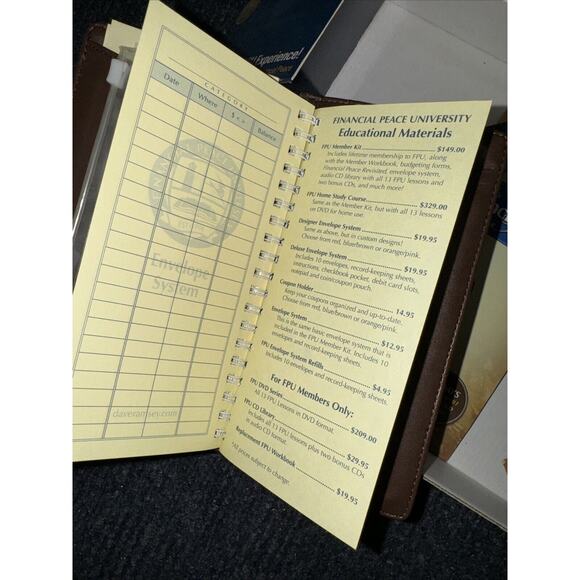 CATEGORY
Date Where $ < > Balance
Envelope
System
daveramsey.com
FINANCIAL PEACE UNIVERSITY
Educational Materials
FPU Member Kit $149.00
Includes lifetime membership to FPU, along
with the Member Workbook, budgeting forms,
Financial Peace Revisited, envelope system,
audio CD library with all 13 FPU lessons and
two bonus CDs, and much more!
FPU Home Study Course $329.00
Same as the Member Kit, but with all 13 lessons
on DVD for home use.
Designer Envelope System $19.95
Same as above, but in custom designs!
Choose from red, blue/brown or orange/pink.
Deluxe Envelope System $19.95
Includes 10 envelopes, record-keeping sheets,
instructions, checkbook pocket, debit card slots,
notepad and coin/coupon pouch.
Coupon Holder 14.95
Keep your coupons organized and up-to-date.
Choose from red, blue/brown or orange/pink.
Envelope System $12.95
This is the same basic envelope system that is
included in the FPU Member Kit. Includes 10
envelopes and record-keeping sheets.
FPU Envelope System Refills $4.95
Includes 10 envelopes and record-keeping sheets.
For FPU Members Only:
FPU DVD Series $209.00
All 13 FPU Lessons in DVD format.
FPU CD Library $29.95
Includes all 13 FPU lessons plus two bonus CDs
in audio CD format.
Replacement FPU Workbook $19.95
*All prices subject to change.
Experience!